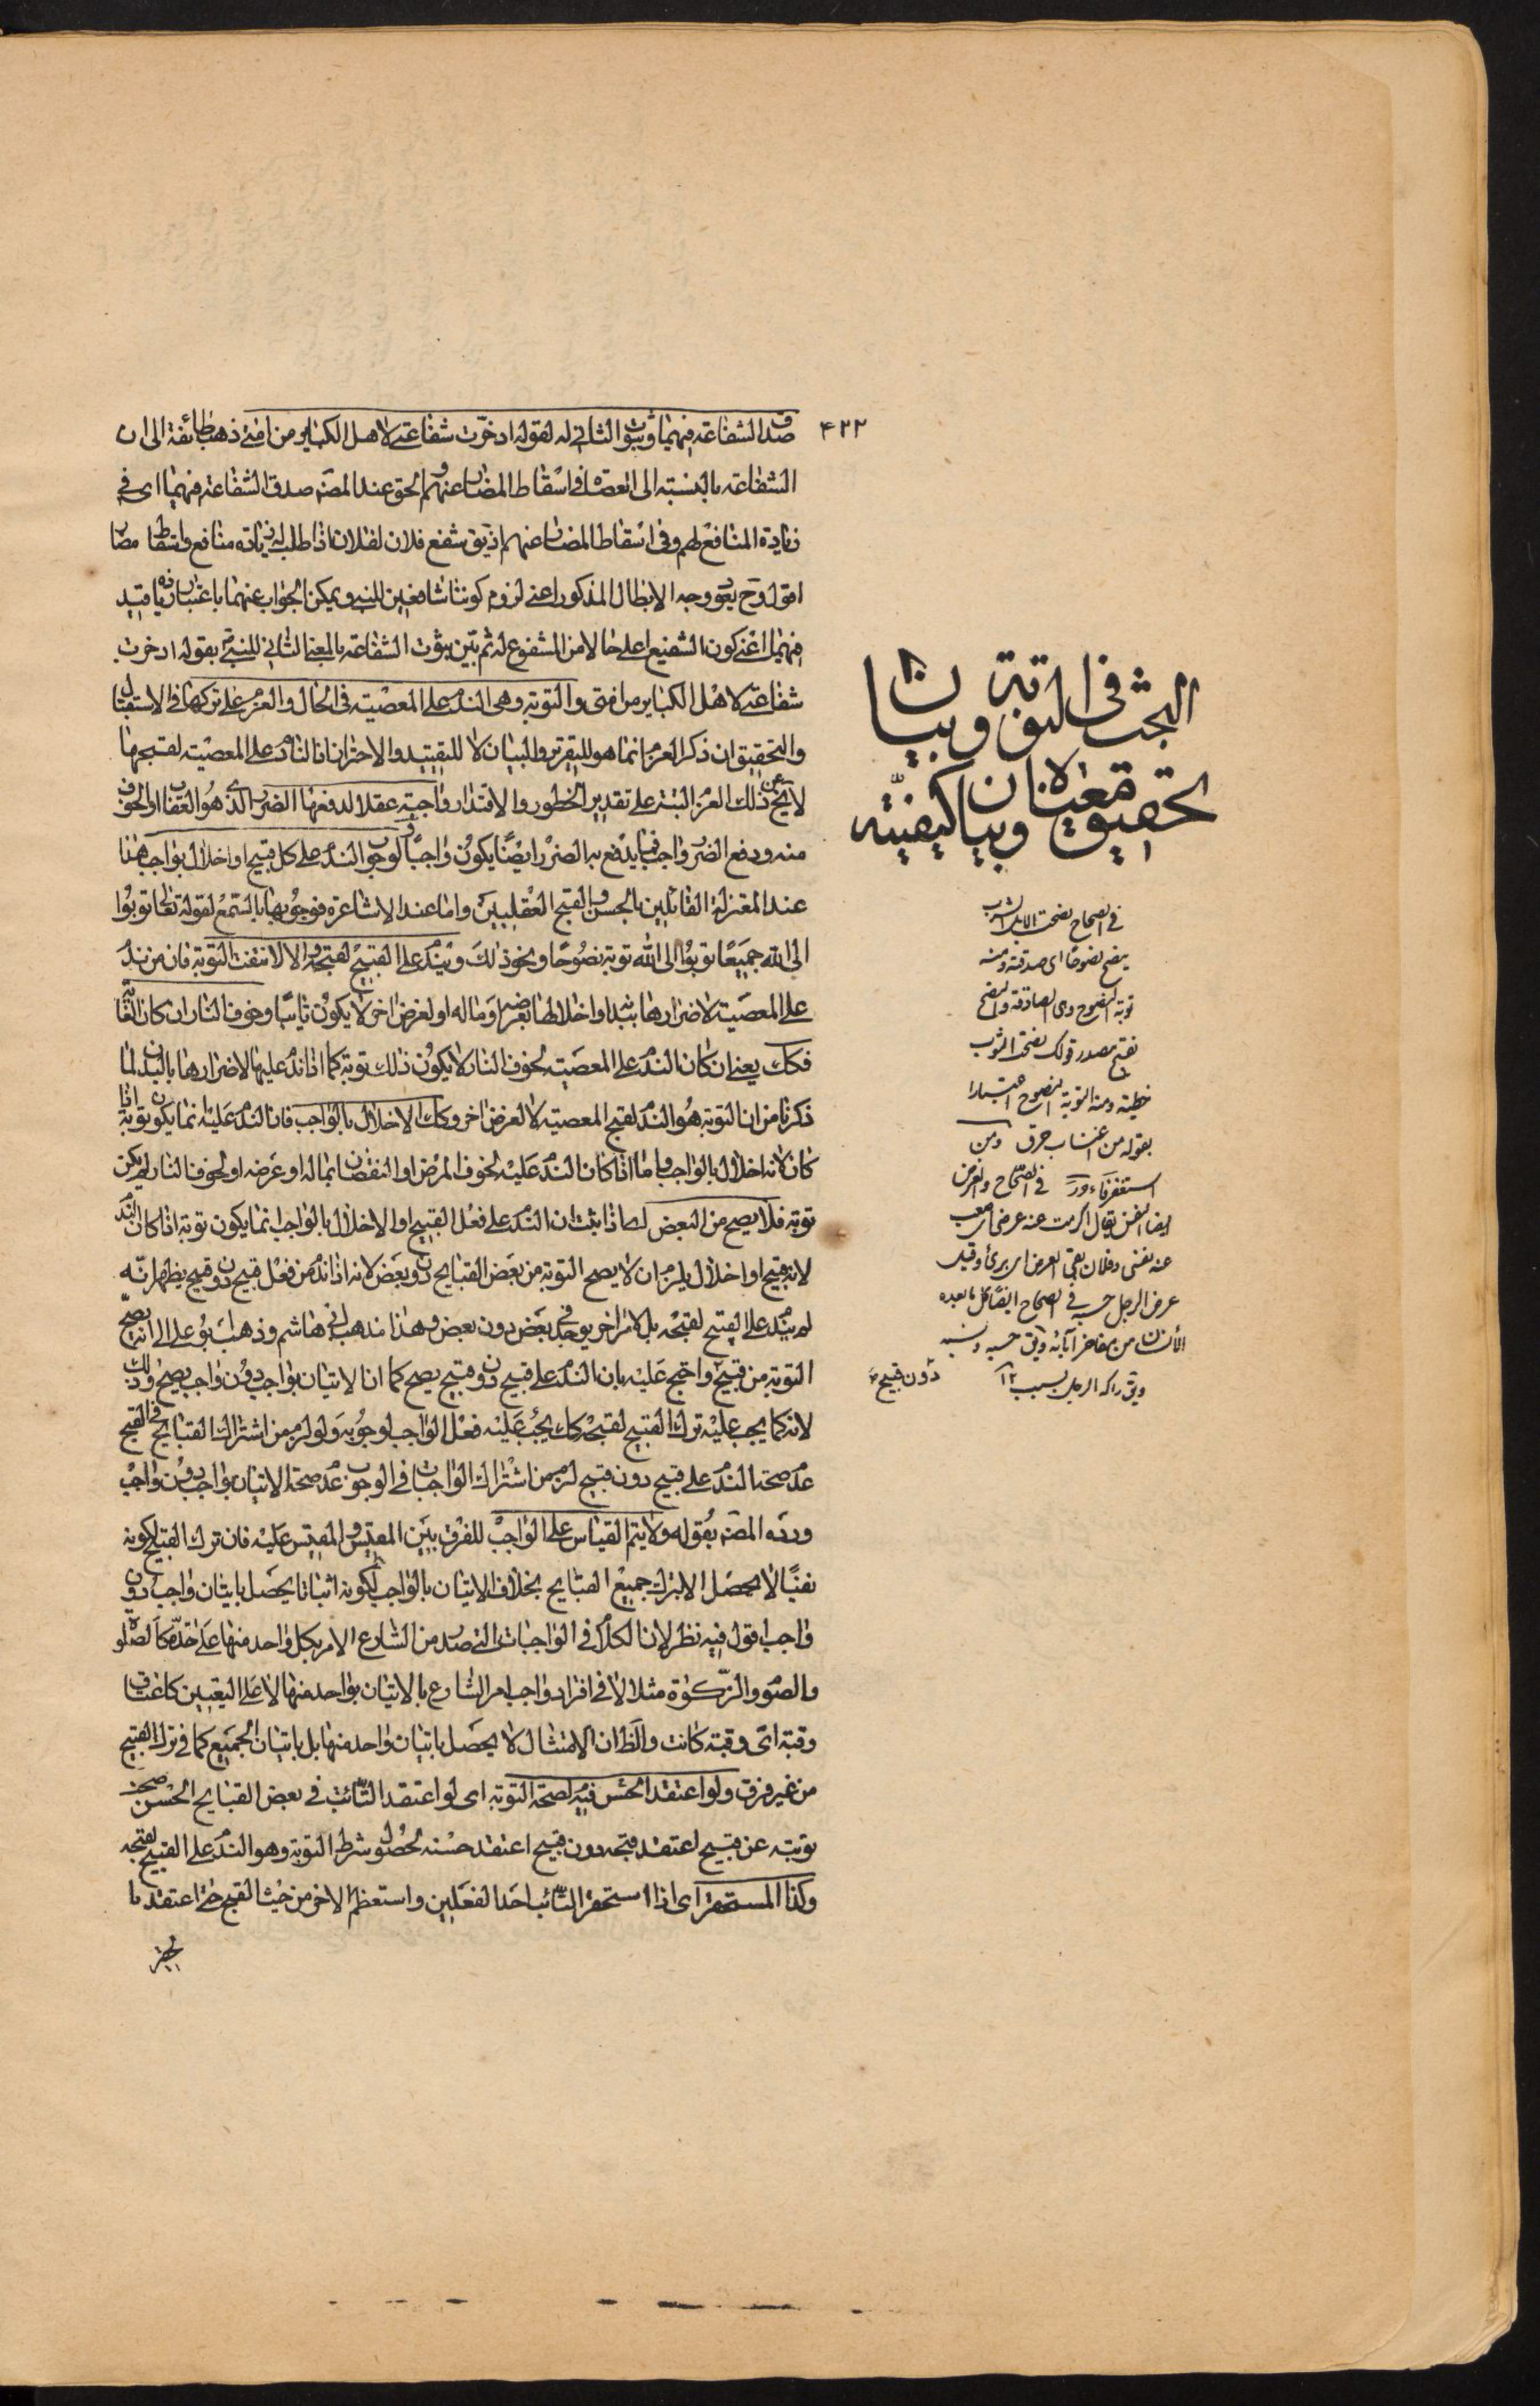 ۴۲۲
صدق الشفاعة فيهما وثبوت الثانى له لقوله ادخرت شفاعتى لاهل الكبائر من امتى ذهب طائفة الى ان
الشفاعة بالنسبة الى العصاة فى اسقاط المضار عنهم والحق عند المصنف صدق الشفاعة فيهما اى فى
زيادة المنافع لهم وفى اسقاط المضار عنهم اذ يق شفع فلان لفلان اذا طلب له زيادة منافع او اسقاط مضار
اقول وح يعود وجه الابطال المذكور اعنى لزوم كوننا شافعين للنبى ويمكن الجواب عنهما باعتبار زيادة قيد
فيهما اعنى كون الشفيع اعلى حالا من المشفوع له ثم بين ثبوت الشفاعة بالمعنى الثانى للنبى ص بقوله ادخرت
شفاعتى لاهل الكبائر من امتى والتوبة وهى الندم على المعصية فى الحال والعزم على تركها فى الاستقبال
والتحقيق ان ذكر العزم انما هو للتقرير والبيان لا للتقييد والاحتراز اذ النادم على المعصية لقبحها
لا يخ عن ذلك العزم البتة على تقدير الخطور والاقتدار واجبة عقلا لدفعها الضرر الذى هو العقاب او الخوف
منه ودفع الضرر واجب فما يدفع به الضرر ايضا يكون واجبا ولوجوب الندم على كل قبيح او اخلال بواجب هذا
عند المعتزلة القائلين بالحسن والقبح العقليين واما عند الاشاعرة فوجوبها بالسمع لقوله تعالى توبوا
الى الله جميعا توبوا الى الله توبة نصوحا ونحو ذلك ويندم على القبيح لقبحه والا لانتفت التوبة فان من ندم
على المعصية لاضرارها ببدنه او اخلالها بعرضه او ماله او لغرض اخر لا يكون تائبا وخوف النار ان كان الغاية
فكك يعنى ان كان الندم على المعصية لخوف النار لا يكون ذلك توبة كما اذا ندم عليها لاضرارها بالبدن لما
ذكرنا من ان التوبة هو الندم لقبح المعصية لا لغرض اخر وكك الاخلال بالواجب فان الندم عليه انما يكون توبة اذا
كان لانه اخلال بالواجب واما اذا كان الندم عليه لخوف المرض او النقصان بماله او عرضه او لخوف النار لم يكن
توبة فلا يصح من البعض لما اذا ثبت ان الندم على فعل القبيح او الاخلال بالواجب انما يكون توبة اذا كان الندم
لانه قبيح او اخلال يلزم ان لا يصح التوبة من بعض القبايح دون بعض لانه اذا ندم من فعل قبيح دون قبيح يظهر انه
لم يندم على القبيح لقبحه بل لامر اخر يوجد فى بعض دون بعض وهذا مذهب ابى هاشم وذهب ابو على الى انه يصح
التوبة من قبيح دون قبيح واحتج عليه بان الندم على قبيح دون قبيح يصح كما ان الاتيان بواجب دون واجب يصح وذلك
لانه كما يجب عليه ترك القبيح لقبحه كك يجب عليه فعل الواجب لوجوبه ولو لزم من اشتراك القبايح فى القبح
عدم صحة الندم على قبيح دون قبيح لزم من اشتراك الواجبات فى الوجوب عدم صحة الاتيان بواجب دون واجب
ورده المصنف بقوله ولا يتم القياس على الواجب للفرق بين المقيس والمقيس عليه فان ترك القبيح لكونه
نفيا لا يحصل الا بترك جميع القبايح بخلاف الاتيان بالواجب لكونه اثباتا يحصل باتيان واجب دون
واجب اقول فيه نظر لان الكلام فى الواجبات التى صدر من الشارع الامر بكل واحد منها على حدة كالصلوة
والصوم والزكوة مثلا لا فى افراد واجب امر الشارع بالاتيان بواحد منها لا على التعيين كاعتاق
رقبة اى رقبة كانت والظ ان الامتثال لا يحصل باتيان واحد منها بل باتيان الجميع كما فى ترك القبيح
من غير فرق ولو اعتقد الحسن فيه لصحة التوبة اى لو اعتقد التائب فى بعض القبايح الحسن صحت
توبته عن قبيح اعتقد قبحه دون قبيح اعتقد حسنه لحصول شرط التوبة وهو الندم على القبيح لقبحه
وكذا المستحقر اى اذا استحقر التائب احد الفعلين واستعظم الاخر من حيث القبح حتى اعتقد ما
البحث فى التوبة وبيان
تحقيق معناها وبيان كيفيته
فى الصحاح نصحت الابل الشرب
ينصح نصوحا اى صدقته ومنه
توبة النصوح وهى الصادقة والنصح
بفتح مصدر قولك نصحت الثوب
خطته ومنه التوبة النصوح اعتبارا
بقوله من اغتاب خرق ومن
استغفر رفا فى الصحاح والعرض
ايضا النفس يقال اكرمت عنه عرضى اى صنت
عنه نفسى وفلان نقى العرض اى برئ وقيل
عرض الرجل حسبه فى الصحاح ايضا
الانسان من مفاخر آبائه حسبه
دون قبيح